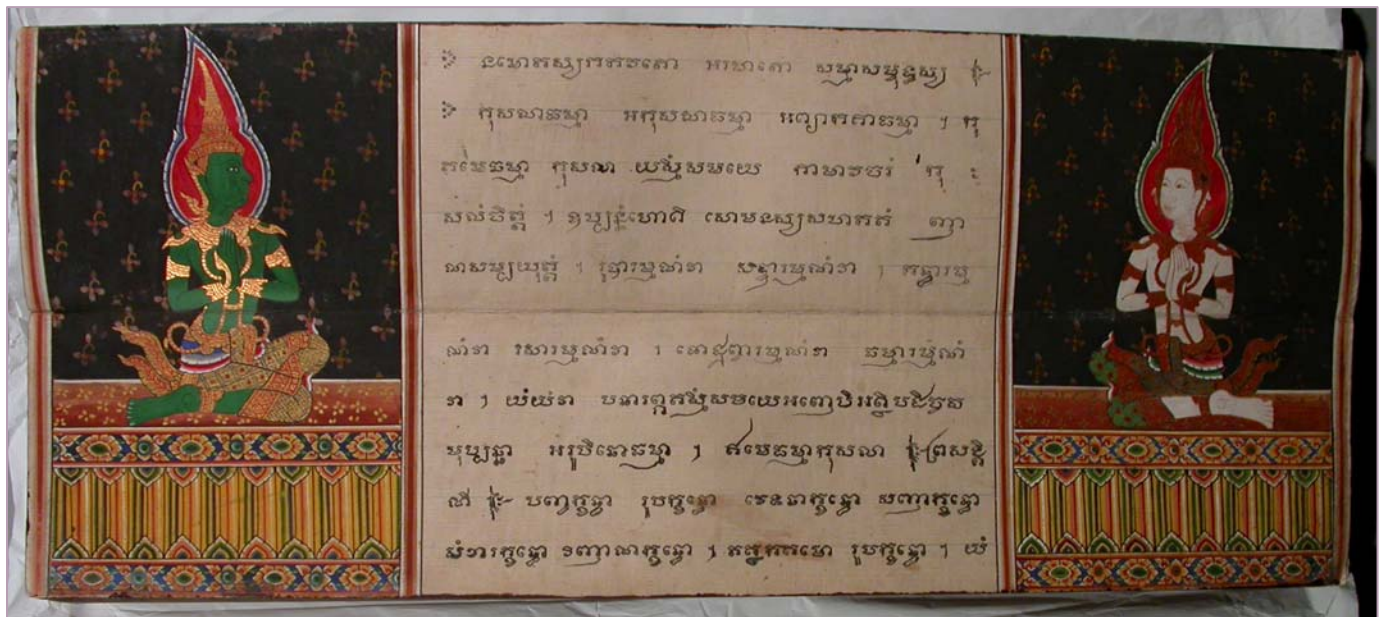 នមោតស្សភគវតោ អរហតោ សម្មាសម្ពុទ្ធស្ស
កុសលាធម្មា អកុសលាធម្មា អព្យាកតាធម្មា ។ ក
តមេធម្មា កុសលា យស្មឹសមយេ កាមាវចរំ កុ
សលំចិត្តំ ។ ឧប្បន្នំហោតិ សោមនស្សសហគតំ ញា
ណសម្បយុត្តំ ។ រូបារម្មណំវា សទ្ទារម្មណំវា ។ គន្ធារម្ម
ណំវា រសារម្មណំវា ។ ផោដ្ឋព្វារម្មណំវា ធម្មារម្មណំ
វា ។ យំយំវា បនារព្ភតស្មឹសមយេ
អរូបិនោធម្មា ។ ឥមេធម្មាកុសលា ព្រសង្គិ
ណី បញ្ចក្ខន្ធា រូបក្ខន្ធោ វេទនាក្ខន្ធោ សញ្ញាក្ខន្ធោ
សំខារក្ខន្ធោ វញ្ញាណក្ខន្ធោ ។ តត្ថកតមោ រូបក្ខន្ធោ ។ យំ